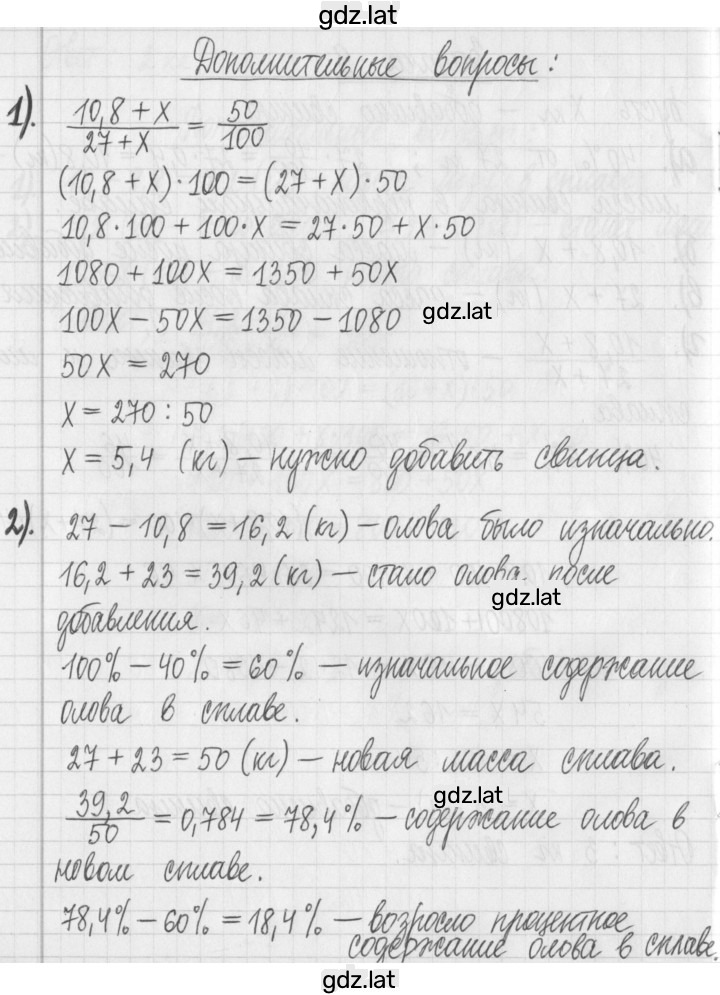 gdz.lat
Дополнительные вопросы:
1). (10,8 + x)/(27 + x) = 50/100
(10,8 + x) · 100 = (27 + x) · 50
10,8 · 100 + 100 · x = 27 · 50 + x · 50
1080 + 100x = 1350 + 50x
100x − 50x = 1350 − 1080
gdz.lat
50x = 270
x = 270 : 50
x = 5,4 (кг) – нужно добавить свинца.
2). 27 − 10,8 = 16,2 (кг) – олова было изначально.
16,2 + 23 = 39,2 (кг) – стало олова после
gdz.lat
добавления.
100% − 40% = 60% – изначальное содержание
олова в сплаве.
27 + 23 = 50 (кг) – новая масса сплава.
gdz.lat
39,2/50 = 0,784 = 78,4% – содержание олова в
новом сплаве.
78,4% − 60% = 18,4% – возросло процентное
содержание олова в сплаве.
gdz.lat